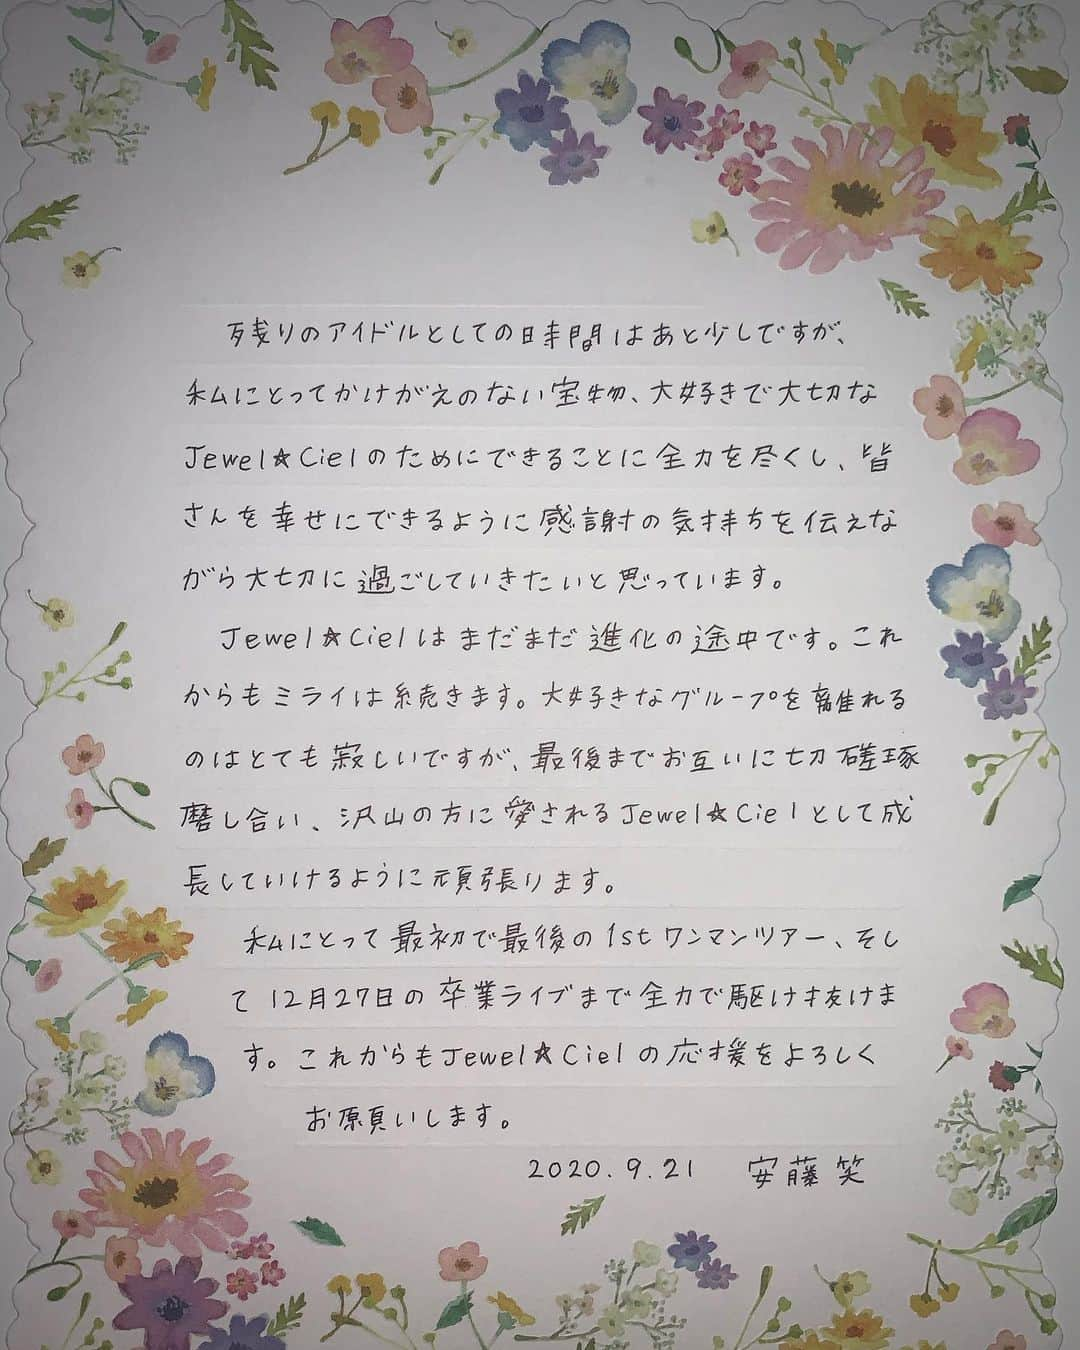 残りのアイドルとしての時間はあと少しですが、
私にとってかけがえのない宝物、大好きで大切な
Jewel☆Cielのためにできることに全力を尽くし、皆
さんを幸せにできるように感謝の気持ちを伝えな
がら大切に過ごしていきたいと思っています。
Jewel☆Cielはまだまだ進化の途中です。これ
からもミライは続きます。大好きなグループを離れる
のはとても寂しいですが、最後までお互いに切磋琢
磨し合い、沢山の方に愛されるJewel☆Cielとして成
長していけるように頑張ります。
私にとって最初で最後の1stワンマンツアー、そし
て12月27日の卒業ライブまで全力で駆け抜けま
す。これからもJewel☆Cielの応援をよろしく
お願いします。
2020.9.21 安藤笑